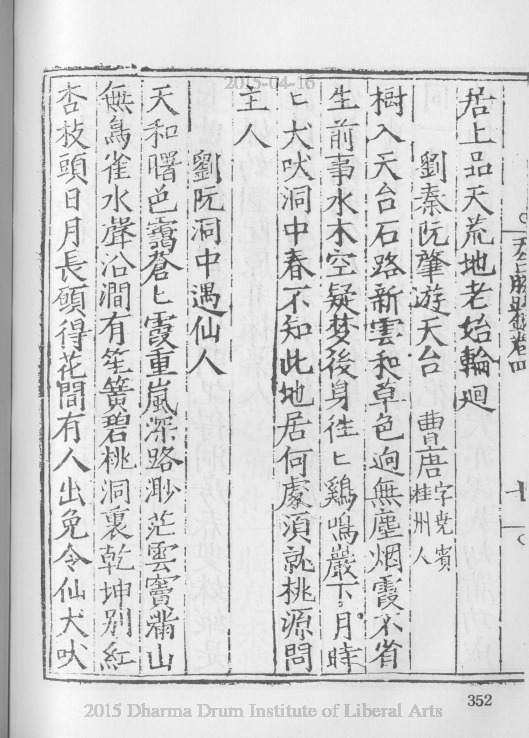 2015-04-16
居上品天荒地老始輪廻
劉秦阮肇游天台 曹唐字尭賓桂州人
樹入天台石路新雲和草色逈無塵烟霞不省
生前事水木空疑梦後身徃〻鷄鳴巖下月時
〻犬吠洞中春不知此地居何處湏就桃源問
主人
劉阮洞中遇仙人
天和曙色靄蒼〻霞重嵐深路渺茫雲竇滿山
無鳥雀水聲沿澗有笙簧碧桃洞裏乾坤别紅
杏枝頭日月長願得花間有人出免令仙犬吠
352
2015 Dharma Drum Institute of Liberal Arts